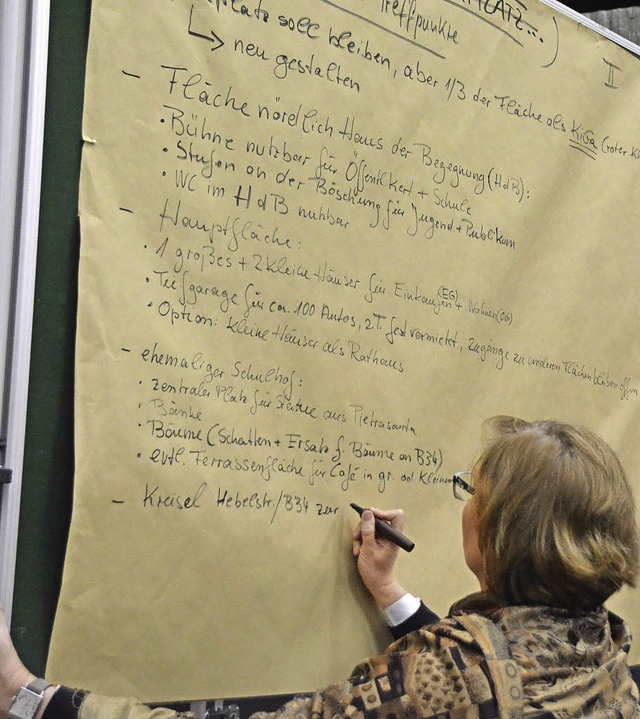 PLATZ... )
Treffpunkte
II
platz soll bleiben, aber 1/3 der Fläche als KiGa (roter
↳ neu gestalten
– Fläche nördlich Haus der Begegnung (HdB):
· Bühne nutzbar für Öffentlkeit + Schule
· Stufen an der Böschung für Jugend + Publikum
· WC im HdB nutzbar
– Hauptfläche:
· 1 großes + 2 kleine Häuser für Einkaufen (EG) + Wohnen (OG)
· Tiefgarage für ca. 100 Autos, z.T. fest vermietet, Zugänge zu anderen Flächen bleiben offen
· Option: kleine Häuser als Rathaus
– ehemaliger Schulhof:
· zentraler Platz für Statue aus Pietrasanta
· Bänke
· Bäume (Schatten + Ersatz f. Bäume an B34)
· evtl. Terrassenfläche für Café in gr. od. kleinem
– Kreisel Hebelstr./B34 zur